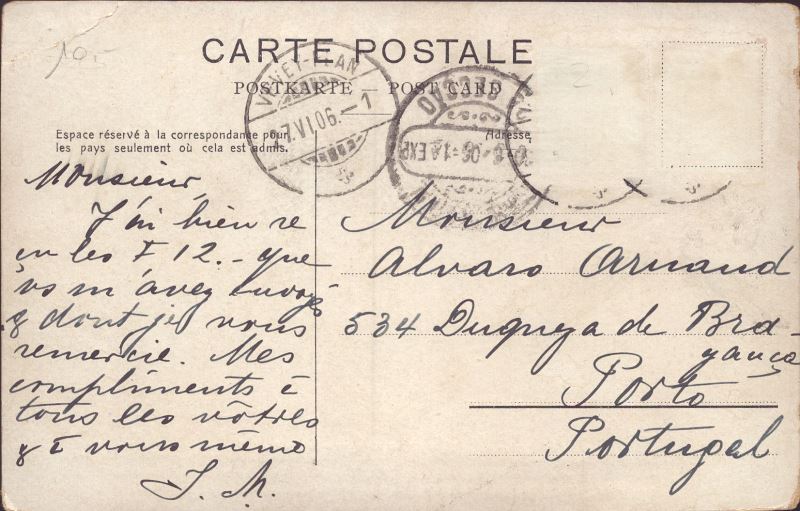 10-
CARTE POSTALE
POSTKARTE — POST CARD
VEVEY-PLAN
7.VI.06.-1
Espace réservé à la correspondance pour
les pays seulement où cela est admis.
Adresse
Monsieur
J'ai bien re
çu les F 12.- que
vs m'avez envoyés
& dont je vous
remercie. Mes
compliments à
tous les vôtres
& à vous même
J. M.
Monsieur
Alvaro Arnaud
534 Duqueza de Bra-
gança
Porto
Portugal